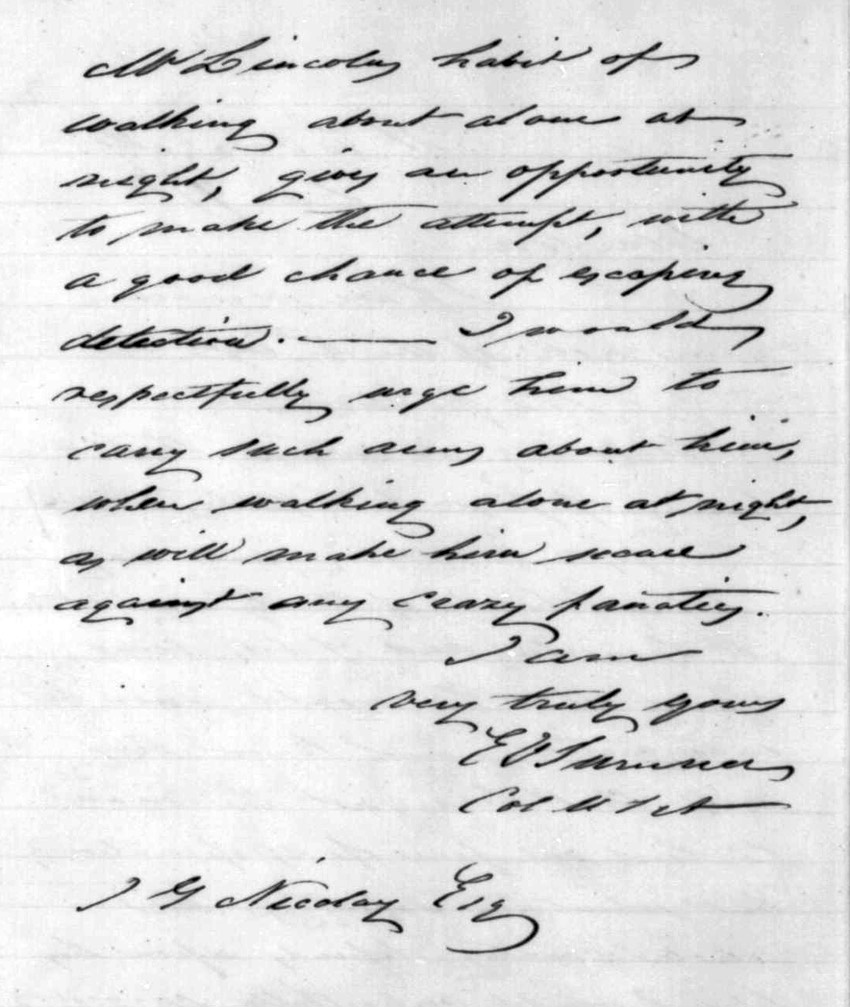 Mr Lincolns habit of
walking about alone at
night, gives an opportunity
to make the attempt, with
a good chance of escaping
detection. —— I would
respectfully urge him to
carry such arms about him,
when walking alone at night,
as will make him secure
against any crazy fanatics.
I am
very truly yours
E V Sumner
Col U S A
J G Nicolay Esq